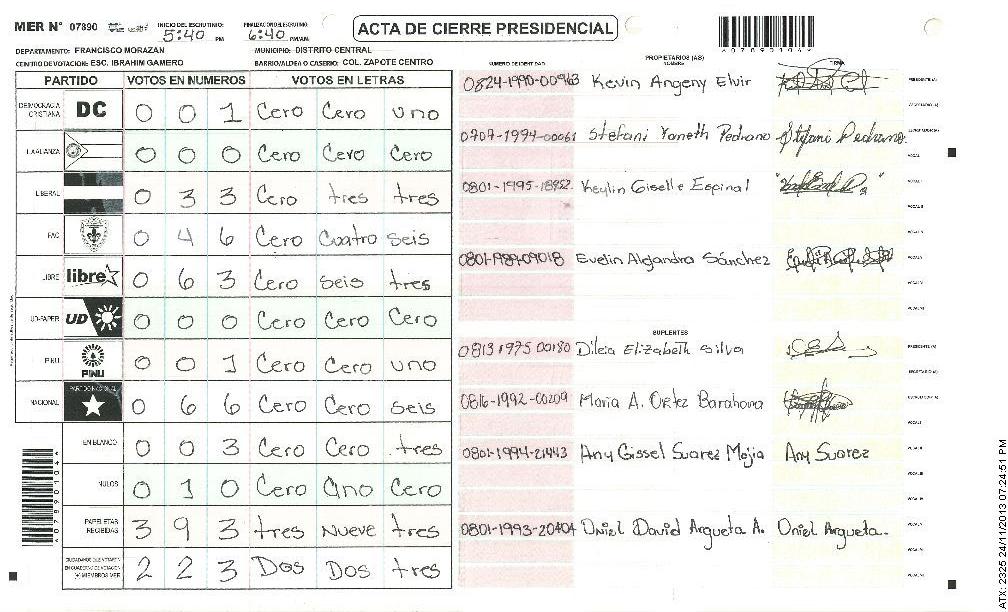 MER N° 07890 INICIO DEL ESCRUTINIO: 5:40 PM FINALIZACIÓN DEL ESCRUTINIO: 6:40 PM/AM
ACTA DE CIERRE PRESIDENCIAL
*07890104*
DEPARTAMENTO: FRANCISCO MORAZAN MUNICIPIO: DISTRITO CENTRAL
CENTRO DE VOTACION: ESC. IBRAHIM GAMERO BARRIO/ALDEA O CASERIO: COL. ZAPOTE CENTRO
PARTIDO VOTOS EN NUMEROS VOTOS EN LETRAS
DEMOCRACIA CRISTIANA DC 0 0 1 Cero Cero uno
LA ALIANZA 0 0 0 Cero Cero Cero
LIBERAL 0 3 3 Cero tres tres
PAC 0 4 6 Cero Cuatro seis
LIBRE libre 0 6 3 Cero seis tres
UD-FAPER UD 0 0 0 Cero Cero Cero
PINU PINU 0 0 1 Cero Cero uno
NACIONAL PARTIDO NACIONAL 0 6 6 Cero Cero seis
EN BLANCO 0 0 3 Cero Cero tres
NULOS 0 1 0 Cero Uno Cero
PAPELETAS RECIBIDAS 3 9 3 tres Nueve tres
CIUDADANOS QUE VOTARON EN CUADERNO DE VOTACION (+) MIEMBROS MER 2 2 3 Dos Dos tres
*07890104*
NUMERO DE IDENTIDAD PROPIETARIOS (AS) NOMBRE FIRMA
0824-1990-00963 Kevin Angeny Elvir PRESIDENTE (A)
SECRETARIO (A)
0707-1994-00061 Stefani Yaneth Pedrano Stefani Pedrano. ESCRUTADOR (A)
VOCAL I
0801-1995-18952 Keylin Giselle Espinal VOCAL II
VOCAL III
0801-1989-09018 Evelin Alejandra Sánchez VOCAL IV
VOCAL V
VOCAL VI
SUPLENTES
0813 1975 00180 Dilcia Elizabeth Silva PRESIDENTE (A)
SECRETARIO (A)
0816-1992-00209 Maria A. Ortez Barahona ESCRUTADOR (A)
VOCAL I
0801-1994-21443 Any Gissel Suarez Mejia Any Suarez VOCAL II
VOCAL III
0801-1993-20404 Oniel David Argueta A. Oniel Argueta. VOCAL IV
VOCAL V
VOCAL VI
ATX: 2325 24/11/2013 07:24:51 PM